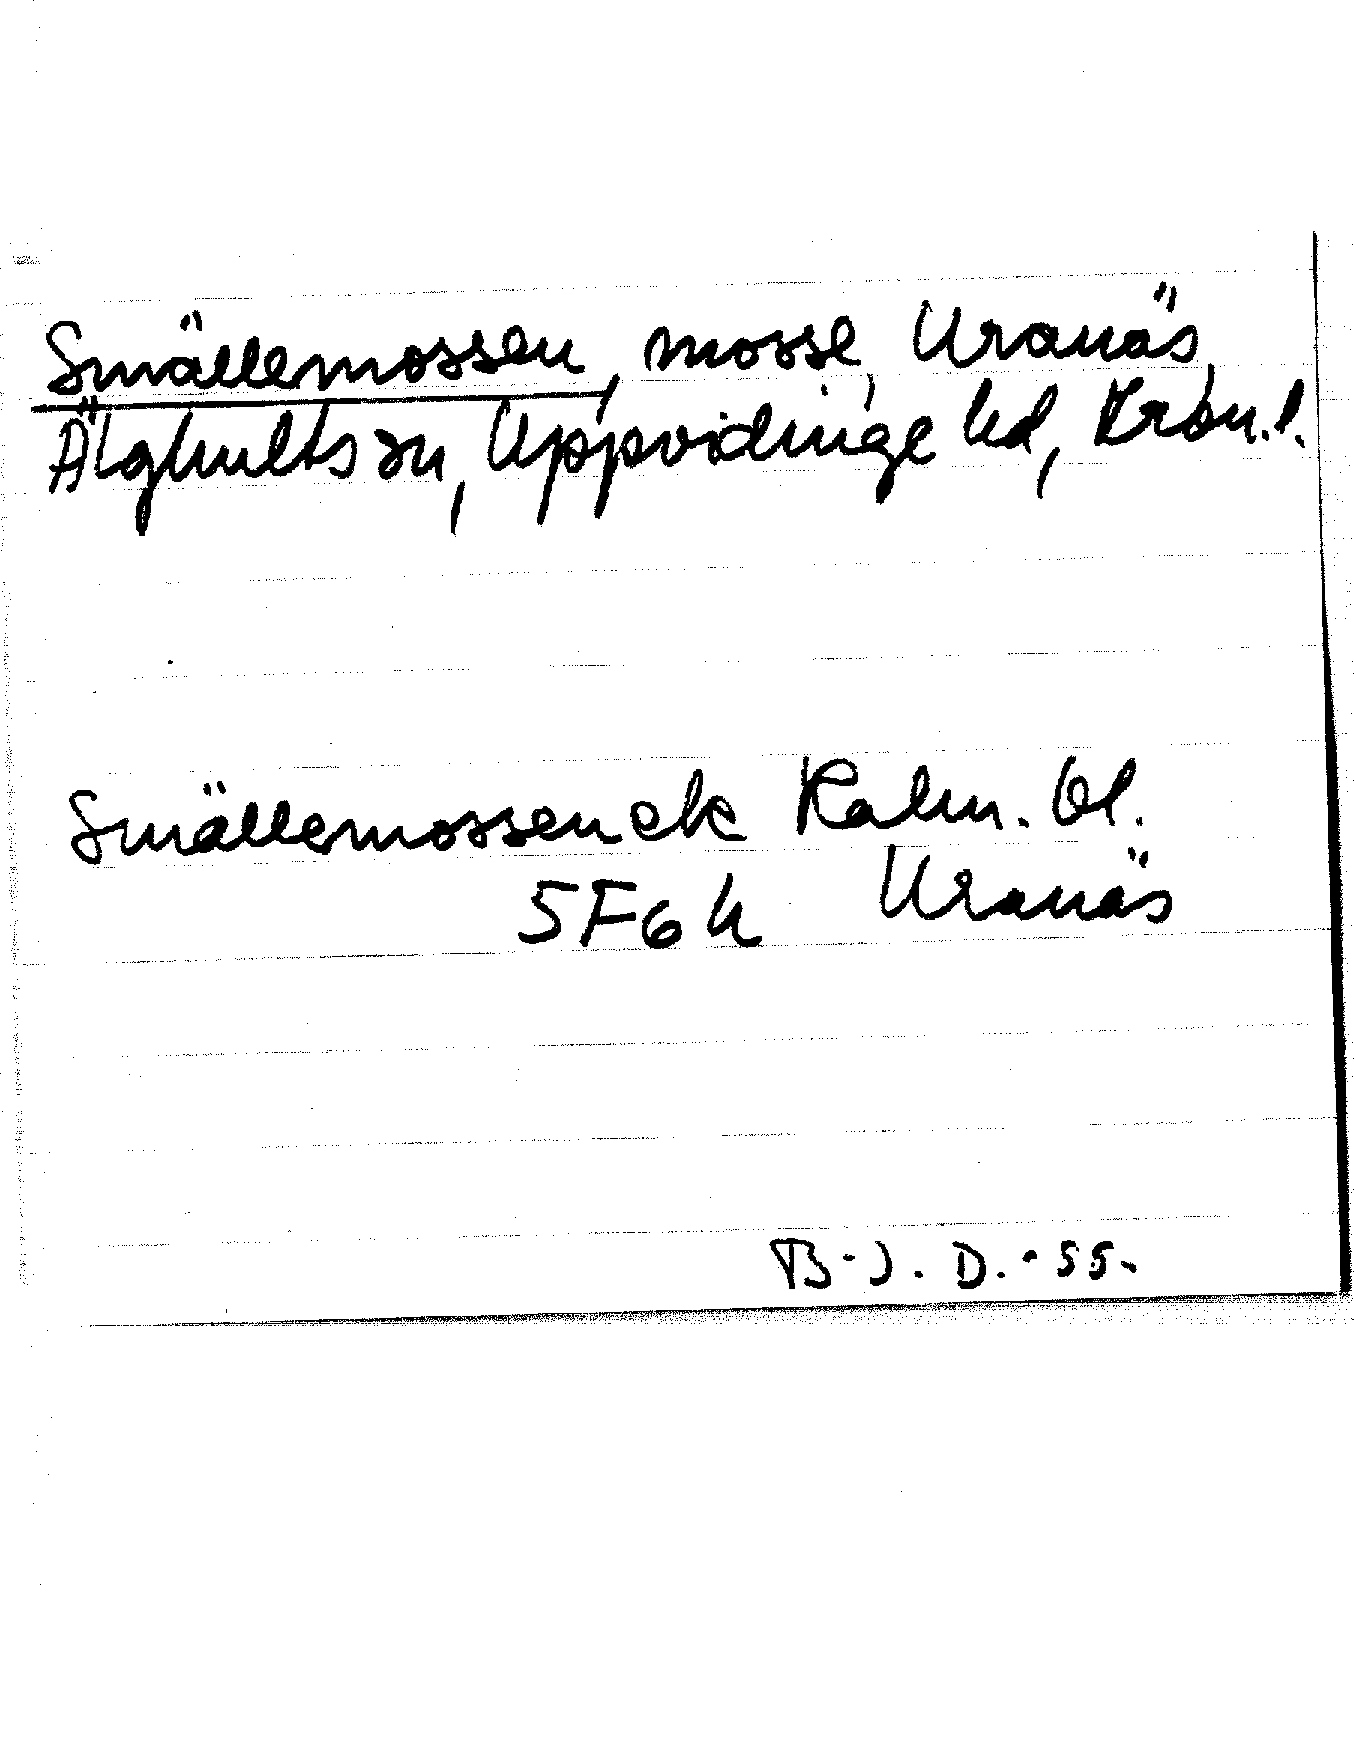 Smällemossen, mosse, Uranäs,
Älghults sn, Uppvidinge hd, Kron.l.
Smällemossen ek Kalm. bl.
5F6h Uranäs
B.J.D. -55.